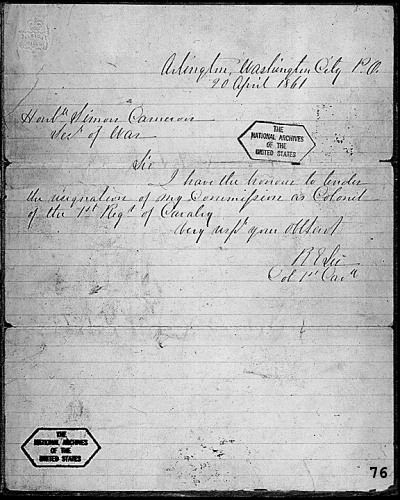 Arlington, Washington City P.O.
20 April 1861
Honble Simon Cameron
Secy of War
THE
NATIONAL ARCHIVES
OF THE
UNITED STATES
Sir
I have the honour to tender
the resignation of my Commission as Colonel
of the 1st Regt of Cavalry
Very respy your Obt Servt
R E Lee
Col 1st Cavy
THE
NATIONAL ARCHIVES
OF THE
UNITED STATES
76